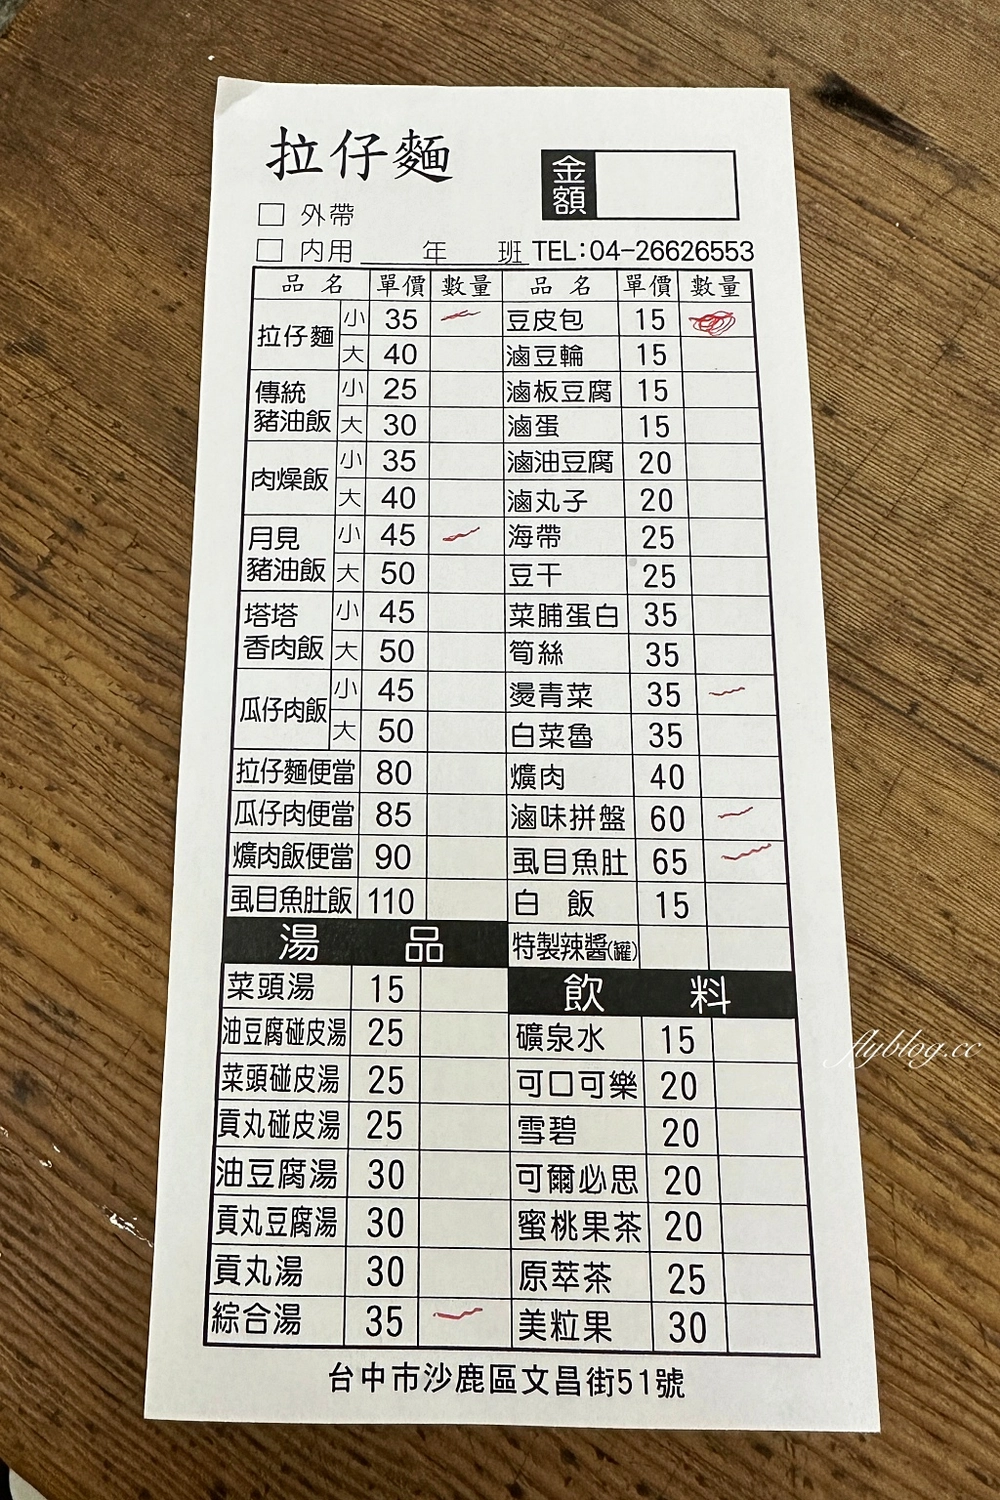 拉仔麵
金額
□ 外帶
□ 內用____年____班 TEL:04-26626553
品名 單價 數量 品名 單價 數量
拉仔麵 小 35 豆皮包 15
大 40 滷豆輪 15
傳統豬油飯 小 25 滷板豆腐 15
大 30 滷蛋 15
肉燥飯 小 35 滷油豆腐 20
大 40 滷丸子 20
月見豬油飯 小 45 海帶 25
大 50 豆干 25
塔塔香肉飯 小 45 菜脯蛋白 35
大 50 筍絲 35
瓜仔肉飯 小 45 燙青菜 35
大 50 白菜魯 35
拉仔麵便當 80 爌肉 40
瓜仔肉便當 85 滷味拼盤 60
爌肉飯便當 90 虱目魚肚 65
虱目魚肚飯 110 白飯 15
湯品 特製辣醬(罐)
菜頭湯 15 飲料
油豆腐碰皮湯 25 礦泉水 15
菜頭碰皮湯 25 可口可樂 20
貢丸碰皮湯 25 雪碧 20
油豆腐湯 30 可爾必思 20
貢丸豆腐湯 30 蜜桃果茶 20
貢丸湯 30 原萃茶 25
綜合湯 35 美粒果 30
台中市沙鹿區文昌街51號
flyblog.cc